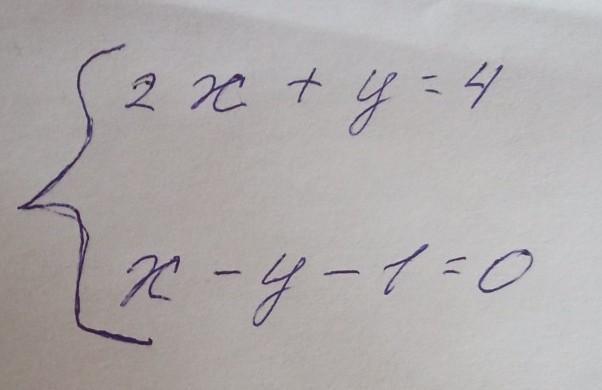 2x + y = 4
x - y - 1 = 0